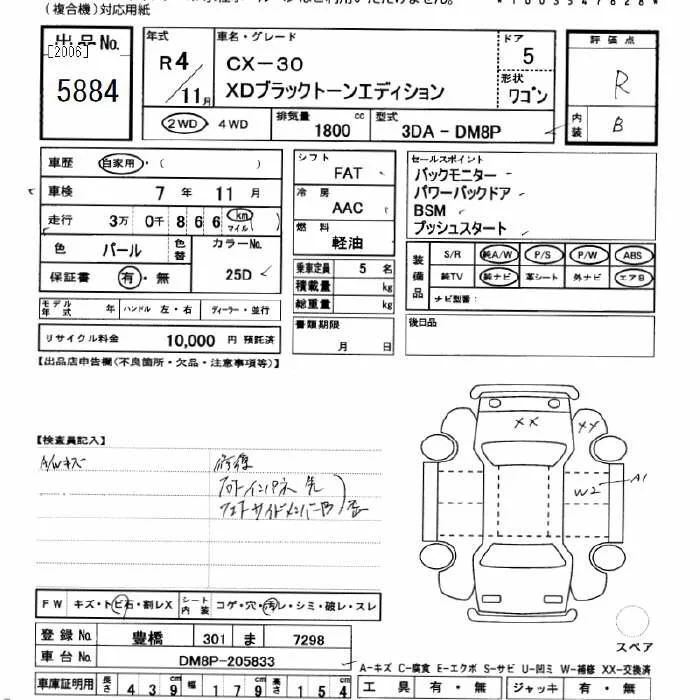 (複合機)対応用紙
出品No.
[2006]
5884
年式 R4/11月
車名・グレード
CX-30
XDブラックトーンエディション
ドア 5
形状 ワゴン
2WD 4WD
排気量 1800 cc
型式 3DA-DM8P
評価点
R
内装 B
車歴 自家用・( )
車検 7年 11月
走行 3万 0千 8 6 6 km マイル
色 パール 色替
カラーNo. 25D
保証書 有・無
シフト FAT
冷房 AAC
燃料 軽油
乗車定員 5 名
積載量 kg
総重量 kg
書類期限 月 日
セールスポイント
バックモニター
パワーバックドア
BSM
プッシュスタート
装備品
S/R 純A/W P/S P/W ABS
純TV 純ナビ 革シート 外ナビ エアB
ナビ型番:
後日品
モデル年式 年 ハンドル 左・右 ディーラー・並行
リサイクル料金 10,000 円 預託済
【出品店申告欄(不良箇所・欠品・注意事項等)】
【検査員記入】
A/Wキズ
修復
フロントインパネ 先
フロントサイドメンバーB
XX
XX
W2
A1
FW キズ・トビ石・割レX
シート内装 コゲ・穴・汚レ・シミ・破レ・スレ
登録No. 豊橋 301 ま 7298
車台No. DM8P-205833
車庫証明用 長さ 439cm 幅 179cm 高さ 154cm
スペア
A-キズ C-腐食 E-エクボ S-サビ U-凹ミ W-補修 XX-交換済
工具 有・無 ジャッキ 有・無